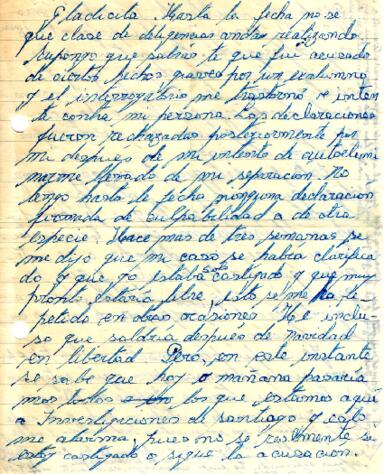 Gladicita. Hasta la fecha no se
que clase de diligencias andas realizando
supongo que sabrás te que fui acusado
de ciertos hechos graves por un exalumno
y el interrogatorio me trastornó e inten
te contra mi persona. Las declaraciones
fueron rechazadas posteriormente por
mi despues de mi intento de autoelimi
marme llevado de mi separacion. No
tengo hasta la fecha ninguna declaracion
firmada de culpabilidad o de otra
especie. Hace mas de tres semanas se
me dijo que mi caso se habia clarifica
do y que yo estaba solo castigado y que muy
pronto estaria libre, esto se me ha re
petido en otras ocasiones. He inclu
so que saldría después de navidad
en libertad. Pero, en este instante
se sabe que hoy o mañana pasaria
mos todos los que estamos aqui
a Investigaciones de Santiago y esto
me alarma, pues no se realmente si
estoy castigado o sigue la acusacion.